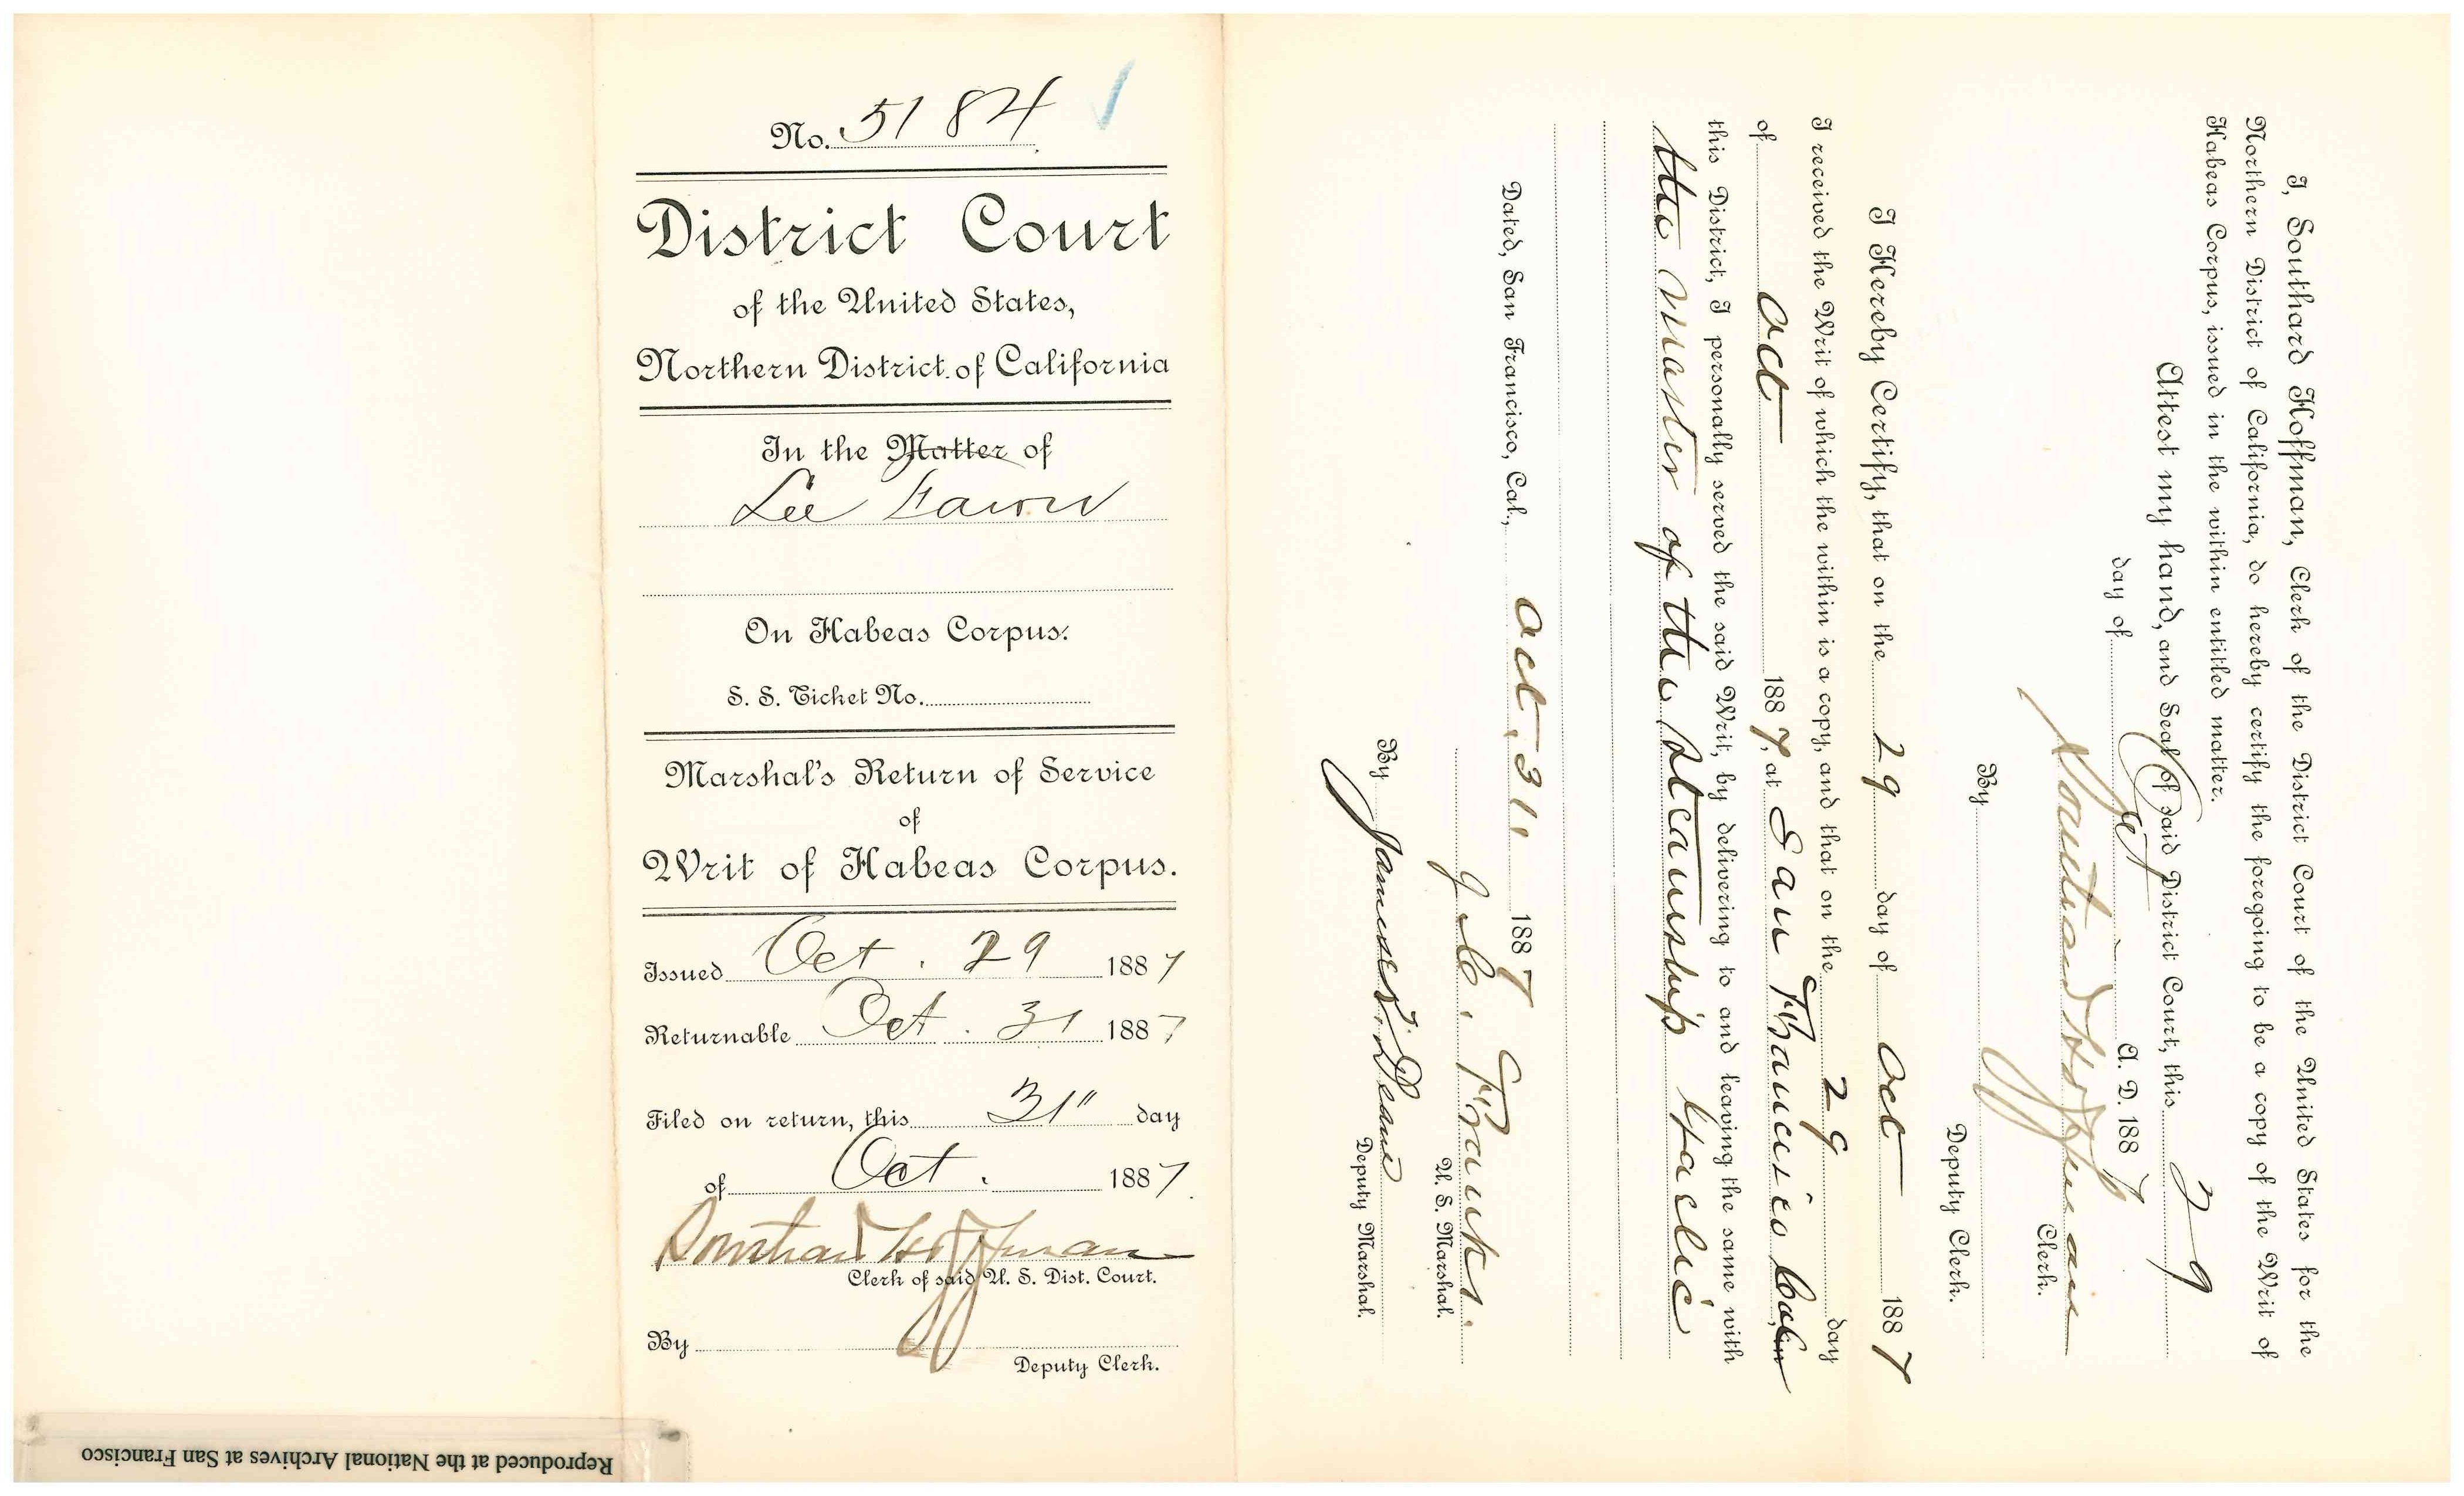 No. 5184
District Court
of the United States,
Northern District of California
In the Matter of
Lee
On Habeas Corpus.
S. S. Ticket No.
Marshal's Return of Service
of
Writ of Habeas Corpus.
Issued Oct. 29 1887
Returnable Oct. 31 1887
Filed on return, this 31" day
of Oct. 1887.
Southard Hoffman
Clerk of said U. S. Dist. Court.
By
Deputy Clerk.
I, Southard Hoffman, Clerk of the District Court of the United States for the
Northern District of California, do hereby certify the foregoing to be a copy of the Writ of
Habeas Corpus, issued in the within entitled matter.
Attest my hand, and Seal of said District Court, this 29
day of Oct A. D. 1887
Southard Hoffman
Clerk.
By
Deputy Clerk.
I Hereby Certify, that on the 29 day of Oct 1887
I received the Writ of which the within is a copy, and that on the 29 day
of Oct 1887, at San Francisco
this District, I personally served the said Writ, by delivering to and leaving the same with
the master of the steamship Gaelic
Dated, San Francisco, Cal., Oct. 31, 1887
J. C. Franks.
U. S. Marshal.
By
Deputy Marshal.
Reproduced at the National Archives at San Francisco